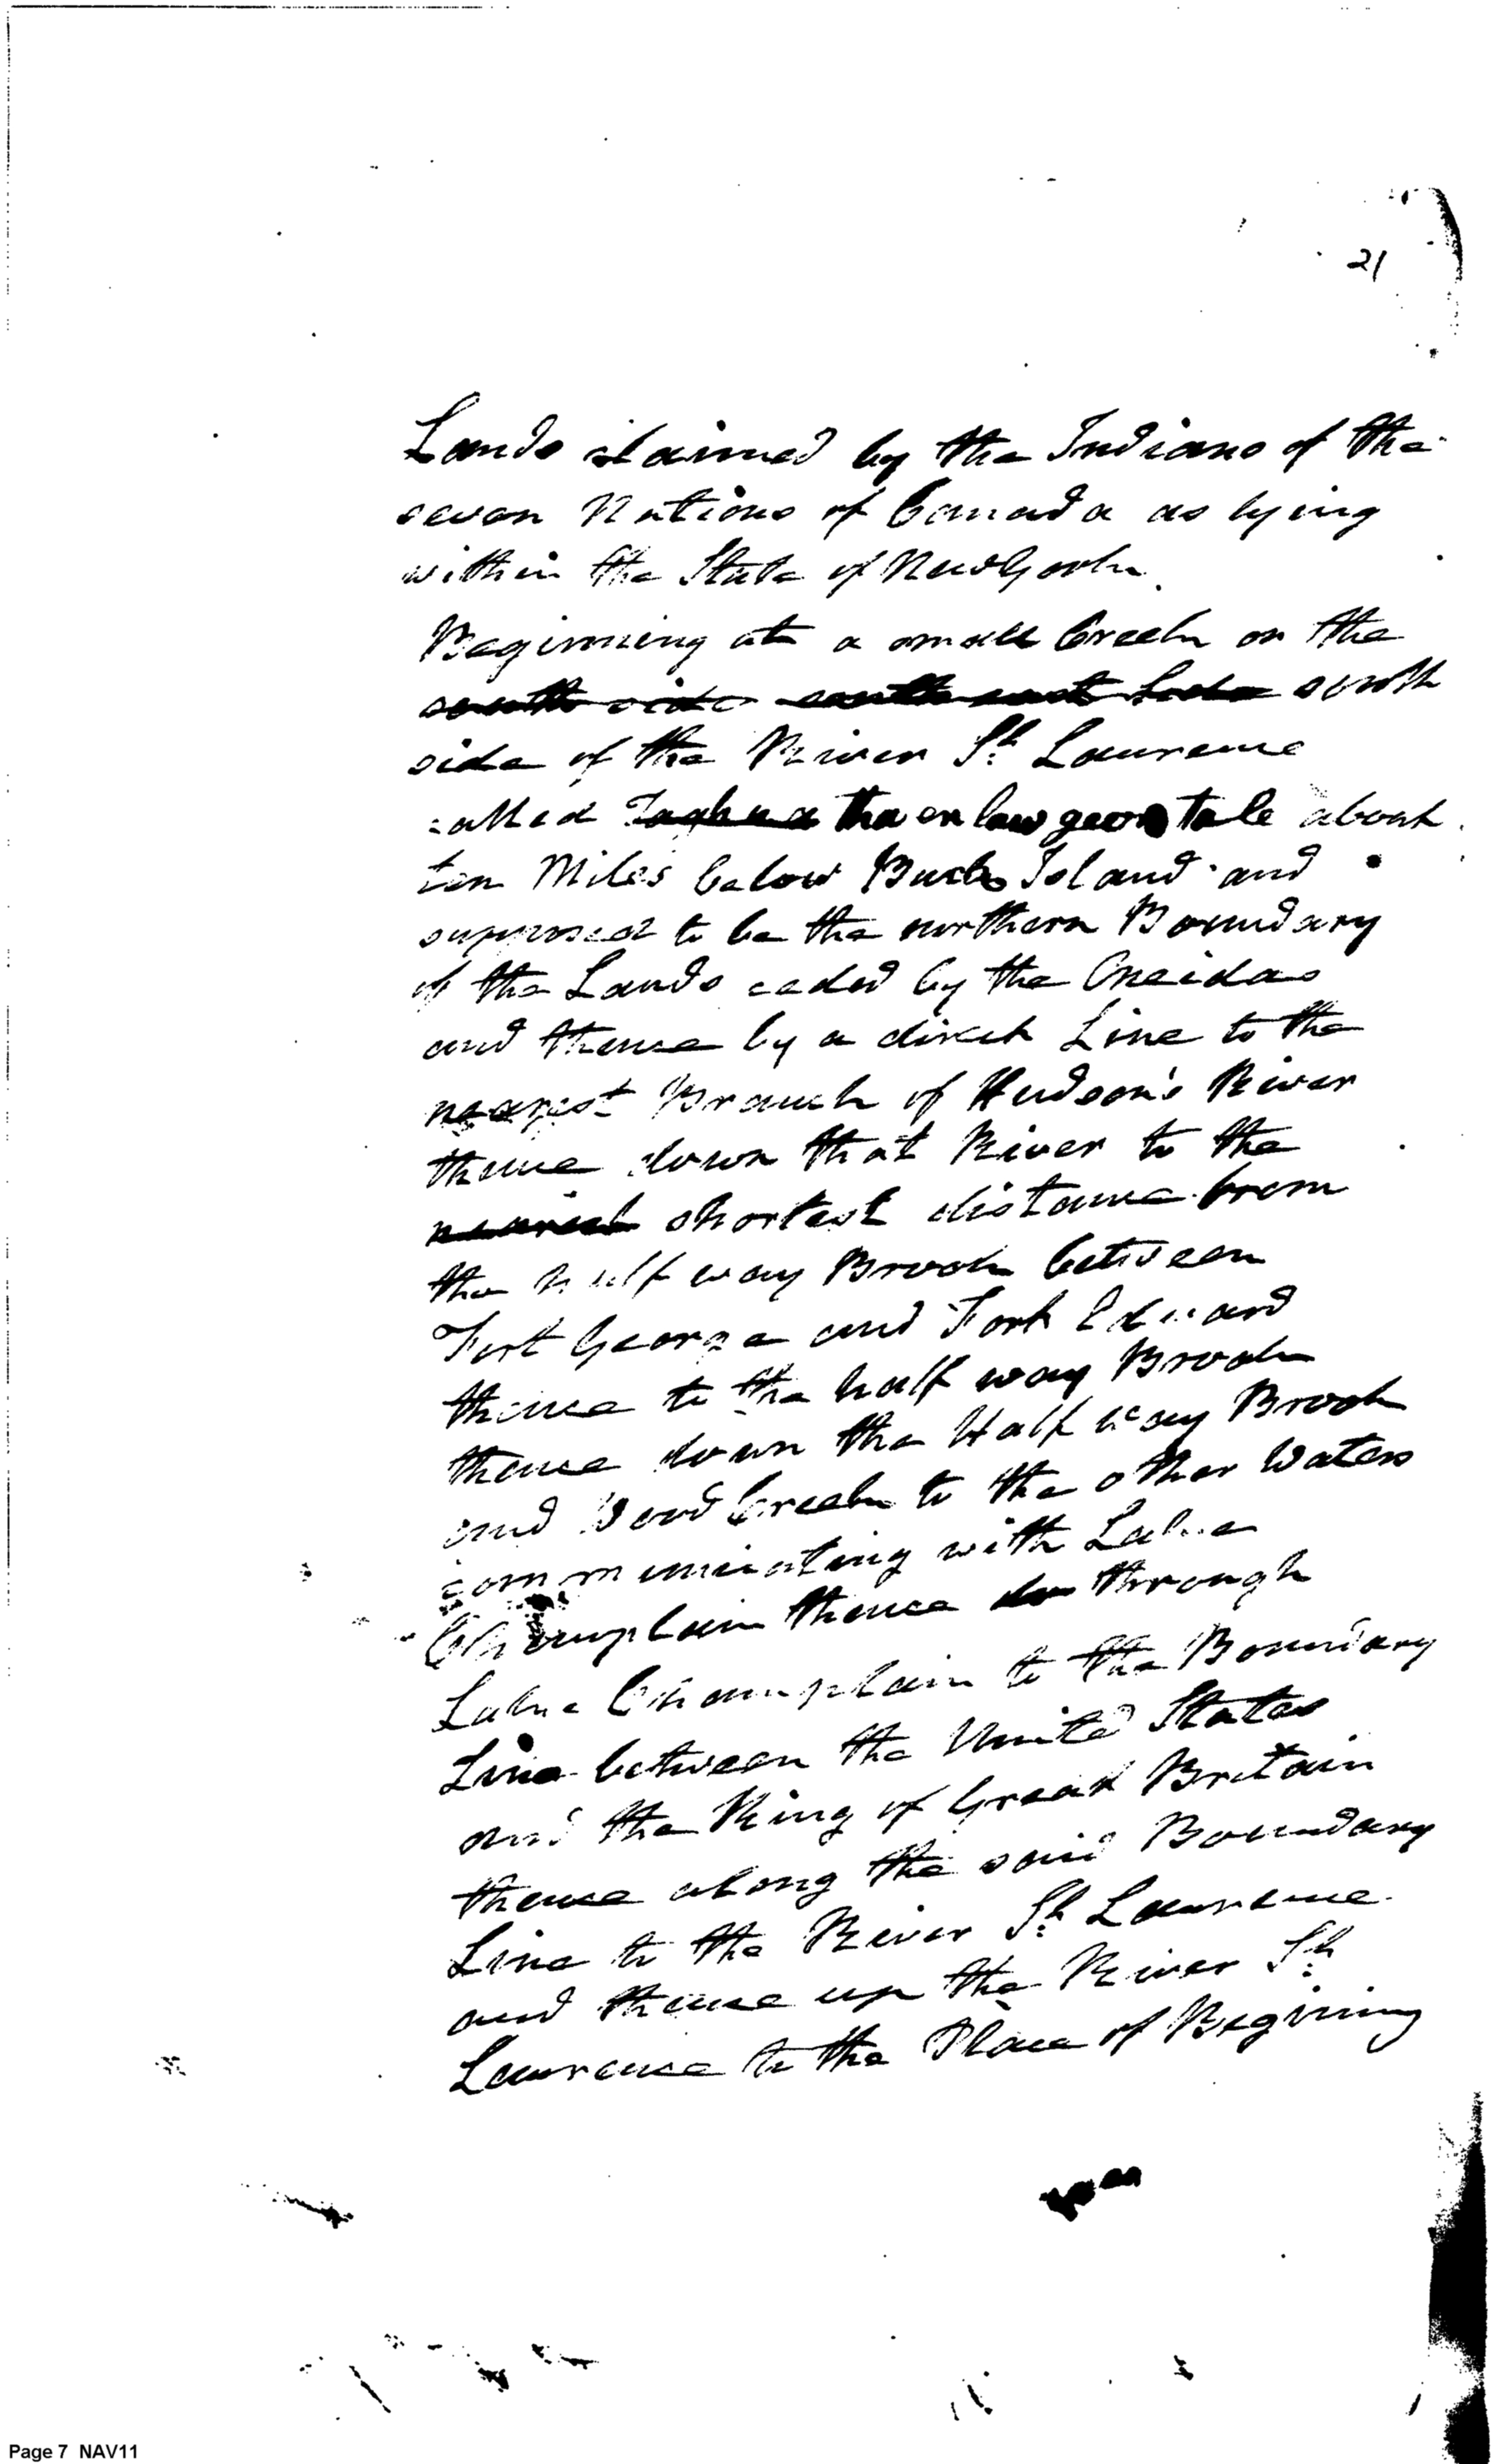 21
Lands claimed by the Indians of the
seven Nations of Canada as lying
within the State of New York.
Beginning at a small Creek on the
south side south east Side south
side of the River St. Lawrence
called tha en law geon tale about
ten Miles below Bucks Island and
supposed to be the northern Boundary
of the Lands ceded by the Oneidas
and thence by a direct Line to the
nearest Branch of Hudson's River
thence down that River to the
nearest shortest distance from
the half way Brook between
Fort George and Fort Edward
thence to the half way Brook
thence down the Half way Brook
and Wood Creek to the other Waters
communicating with Lake
Champlain thence do through
Lake Champlain to the Boundary
Line between the United States
and the King of Great Britain
thence along the said Boundary
Line to the River St. Lawrence
and thence up the River St.
Lawrence to the Place of Begining
Page 7 NAV11